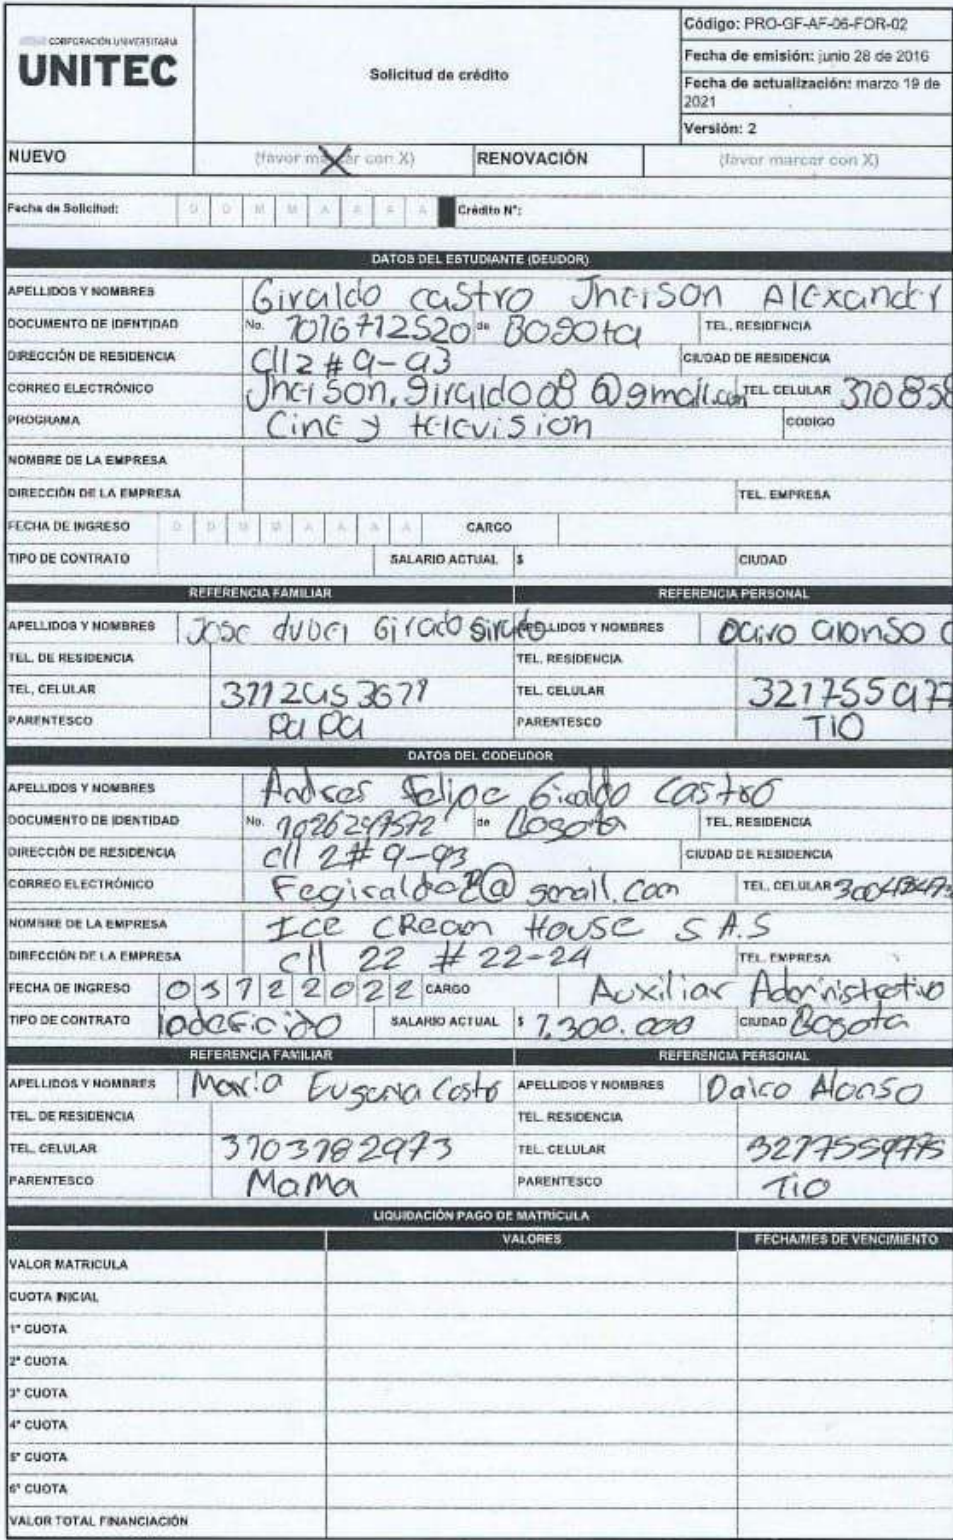 CORPORACIÓN UNIVERSITARIA
UNITEC
Solicitud de crédito
Código: PRO-GF-AF-06-FOR-02
Fecha de emisión: junio 28 de 2016
Fecha de actualización: marzo 19 de
2021
Versión: 2
NUEVO (favor marcar con X) X RENOVACIÓN (favor marcar con X)
Fecha de Solicitud: D D M M A A A A Crédito N°:
DATOS DEL ESTUDIANTE (DEUDOR)
APELLIDOS Y NOMBRES Giraldo castro Jheison Alexander
DOCUMENTO DE IDENTIDAD No. 1016712520 de Bogota TEL. RESIDENCIA
DIRECCIÓN DE RESIDENCIA Cll 2 # 9-93 CIUDAD DE RESIDENCIA
CORREO ELECTRÓNICO Jheison.giraldo08@gmail.com TEL. CELULAR 310858
PROGRAMA Cine y television CODIGO
NOMBRE DE LA EMPRESA
DIRECCIÓN DE LA EMPRESA TEL. EMPRESA
FECHA DE INGRESO D D M M A A A A CARGO
TIPO DE CONTRATO SALARIO ACTUAL $ CIUDAD
REFERENCIA FAMILIAR REFERENCIA PERSONAL
APELLIDOS Y NOMBRES Jose dubei Giraldo Giraldo APELLIDOS Y NOMBRES Dairo alonso
TEL. DE RESIDENCIA TEL. RESIDENCIA
TEL. CELULAR 3112953671 TEL. CELULAR 321755977
PARENTESCO Papa PARENTESCO TIO
DATOS DEL CODEUDOR
APELLIDOS Y NOMBRES Andres Felipe Giraldo Castro
DOCUMENTO DE IDENTIDAD No. 1026297572 de Bogota TEL. RESIDENCIA
DIRECCIÓN DE RESIDENCIA cll 2 # 9-93 CIUDAD DE RESIDENCIA
CORREO ELECTRÓNICO @gmail.com TEL. CELULAR
NOMBRE DE LA EMPRESA Ice CReam House S.A.S
DIRECCIÓN DE LA EMPRESA cll 22 # 22-24 TEL. EMPRESA
FECHA DE INGRESO 0 5 1 2 2 0 2 2 CARGO Auxiliar Administrativo
TIPO DE CONTRATO Indefinido SALARIO ACTUAL $ 1.300.000 CIUDAD Bogota
REFERENCIA FAMILIAR REFERENCIA PERSONAL
APELLIDOS Y NOMBRES Maria Eugenia Castro APELLIDOS Y NOMBRES Dairo Alonso
TEL. DE RESIDENCIA TEL. RESIDENCIA
TEL. CELULAR 3103782973 TEL. CELULAR 3217559775
PARENTESCO Mama PARENTESCO Tio
LIQUIDACIÓN PAGO DE MATRÍCULA
VALORES FECHA/MES DE VENCIMIENTO
VALOR MATRICULA
CUOTA INICIAL
1ª CUOTA
2ª CUOTA
3ª CUOTA
4ª CUOTA
5ª CUOTA
6ª CUOTA
VALOR TOTAL FINANCIACIÓN